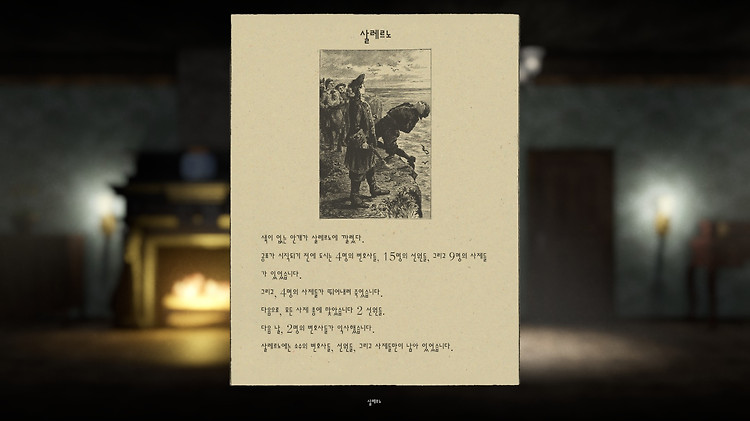 살레르노
색이 없는 안개가 살레르노에 깔렸다.
공포가 시작되기 전에 도시는 4명의 변호사들, 15명의 선원들, 그리고 9명의 사제들
가 있었습니다.
그리고, 4명의 사제들가 뛰어내려 죽었습니다.
다음으로, 모든 사제 총에 맞았습니다 2 선원들.
다음 날, 2명의 변호사들가 익사했습니다.
살레르노에는 소수의 변호사들, 선원들, 그리고 사제들만이 남아 있었습니다.
살레르노